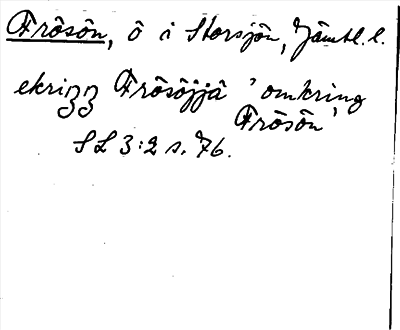 Frösön, ö i Storsjön, Jämtl. l.
ekrizz Frösöjjâ 'omkring
Frösön'
SL 3:2 s. 76.